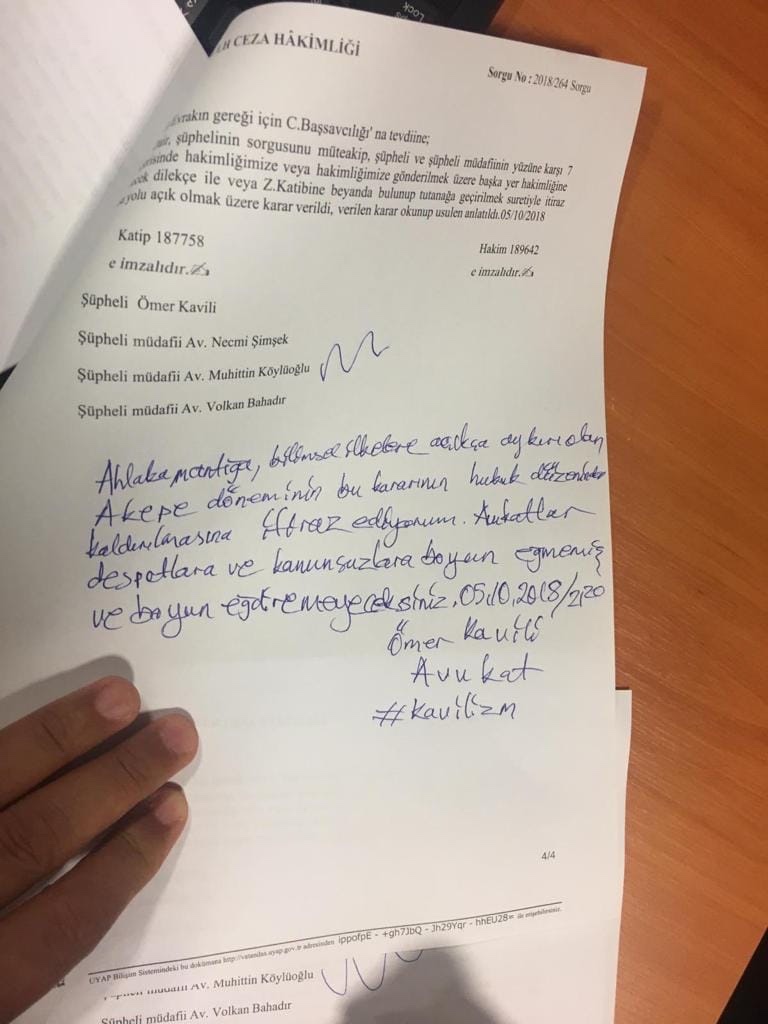 CEZA HÂKİMLİĞİ
Sorgu No : 2018/264 Sorgu
Evrakın gereği için C.Başsavcılığı' na tevdiine;
şüphelinin sorgusunu müteakip, şüpheli ve şüpheli müdafiinin yüzüne karşı 7
hakimliğimize veya hakimliğimize gönderilmek üzere başka yer hakimliğine
dilekçe ile veya Z.Katibine beyanda bulunup tutanağa geçirilmek suretiyle itiraz
yolu açık olmak üzere karar verildi, verilen karar okunup usulen anlatıldı.05/10/2018
Katip 187758
Hakim 189642
e imzalıdır.✍
e imzalıdır.✍
Şüpheli Ömer Kavili
Şüpheli müdafii Av. Necmi Şimşek
Şüpheli müdafii Av. Muhittin Köylüoğlu
Şüpheli müdafii Av. Volkan Bahadır
Ahlaka mantığa, bilimsel ilkelere açıkça aykırı olan
Akepe döneminin bu kararının hukuk
kaldırılmasına itiraz ediyorum. Avukatlar
despotlara ve kanunsuzlara boyun eğmemiş
ve boyun eğdiremeyeceksiniz. 05.10.2018/
Ömer Kavili
Avukat
#kavilizm
4/4
UYAP Bilişim Sistemindeki bu dokümana http://vatandas.uyap.gov.tr adresinden ippofpE - +gh7JbQ - Jh29Yqr - hhEU28= ile erişebilirsiniz.
Av. Muhittin Köylüoğlu
Şüpheli müdafii Av. Volkan Bahadır